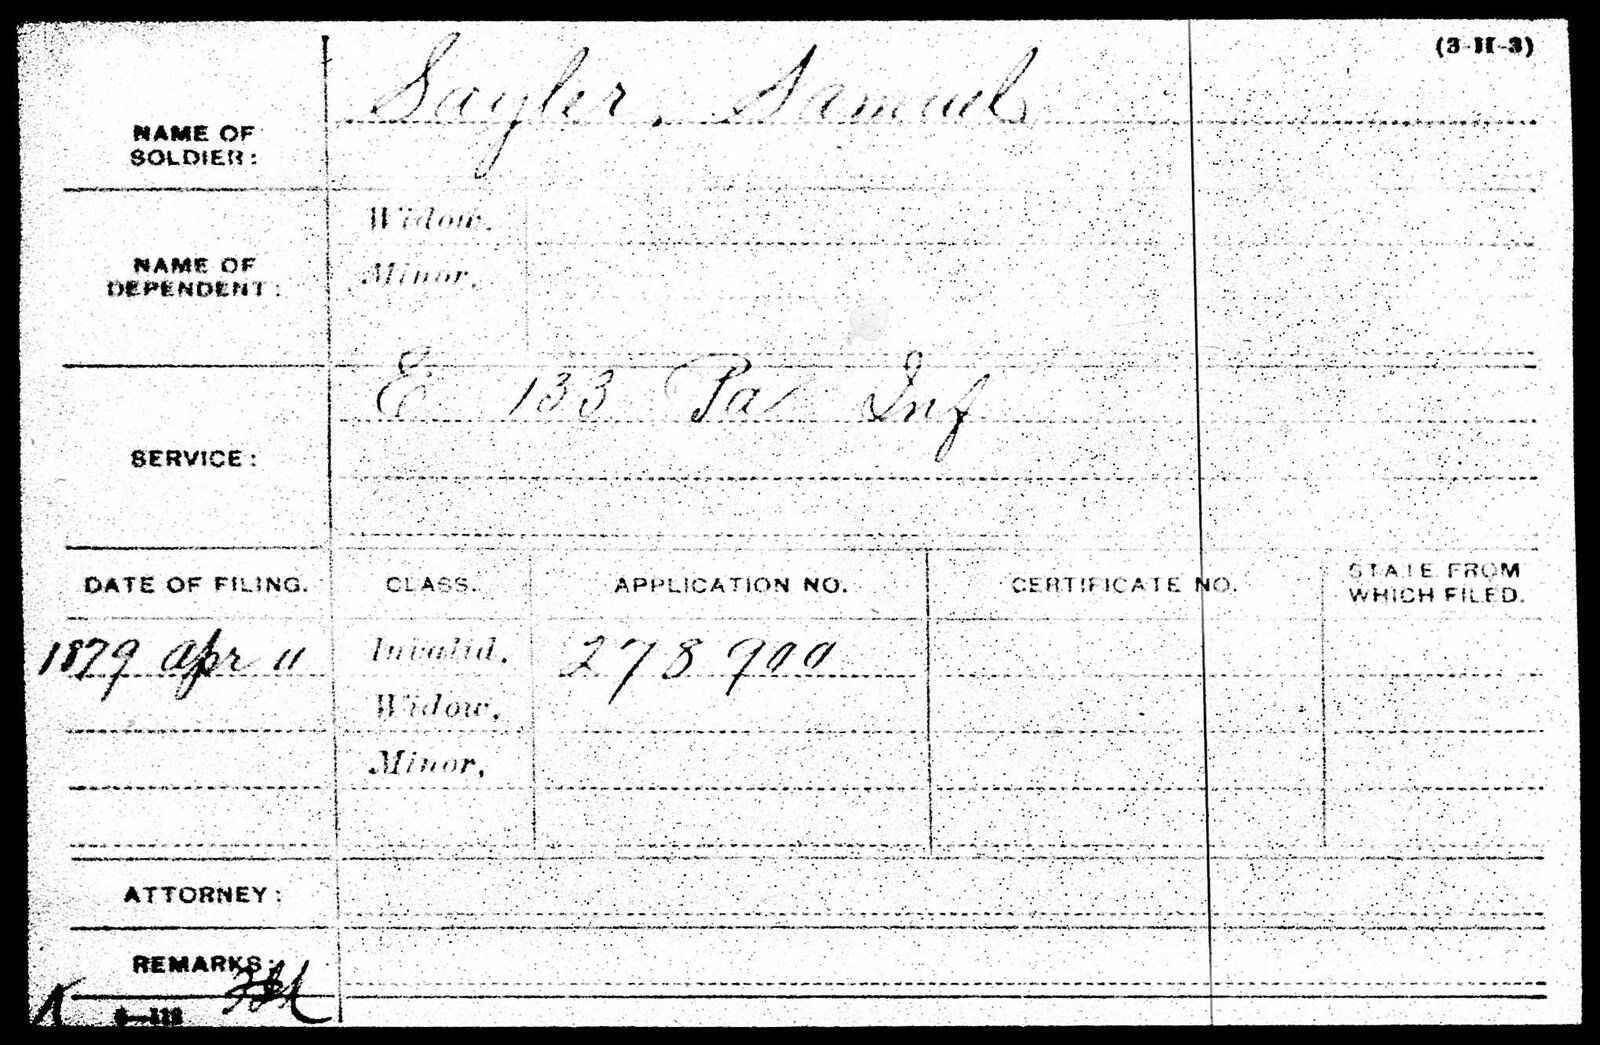 (3-II-3)
NAME OF SOLDIER: Sayler, Samuel
NAME OF DEPENDENT: Widow.
Minor.
SERVICE: E 133 Pa Inf
DATE OF FILING. CLASS. APPLICATION NO. CERTIFICATE NO. STATE FROM WHICH FILED.
1879 Apr 11 Invalid. 278 900
Widow,
Minor,
ATTORNEY:
REMARKS: